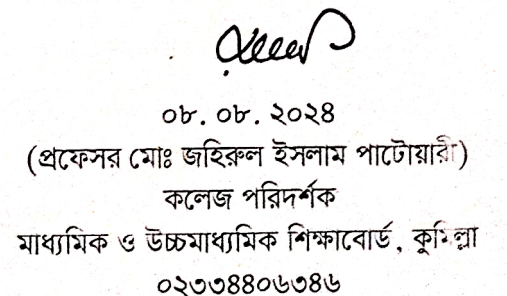 ০৮. ০৮. ২০২৪
(প্রফেসর মোঃ জহিরুল ইসলাম পাটোয়ারী)
কলেজ পরিদর্শক
মাধ্যমিক ও উচ্চমাধ্যমিক শিক্ষাবোর্ড, কুমিল্লা
০২৩৩৪৪০৬৩৪৬